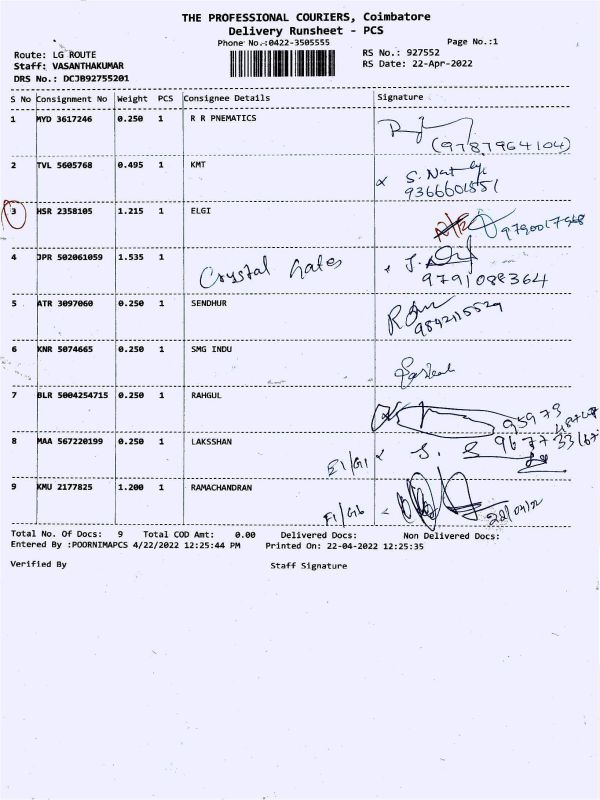 THE PROFESSIONAL COURIERS, Coimbatore
Delivery Runsheet - PCS
Phone No.:0422-3505555
Page No.:1
Route: LG ROUTE
RS No.: 927552
Staff: VASANTHAKUMAR
RS Date: 22-Apr-2022
DRS No.: DCJB92755201
S No Consignment No Weight PCS Consignee Details Signature
1 MYD 3617246 0.250 1 R R PNEMATICS
(9787964104)
2 TVL 5605768 0.495 1 KMT
9366601551
3 HSR 2358105 1.215 1 ELGI
4 JPR 502061059 1.535 1 Crystal Gates
9791088364
5 ATR 3097060 0.250 1 SENDHUR
9842115529
6 KNR 5074665 0.250 1 SMG INDU
7 BLR 5004254715 0.250 1 RAHGUL
8 MAA 567220199 0.250 1 LAKSSHAN
E1/G1
9 KMU 2177825 1.200 1 RAMACHANDRAN
F1/G6
Total No. Of Docs: 9 Total COD Amt: 0.00 Delivered Docs: Non Delivered Docs:
Entered By :POORNIMAPCS 4/22/2022 12:25:44 PM Printed On: 22-04-2022 12:25:35
Verified By Staff Signature